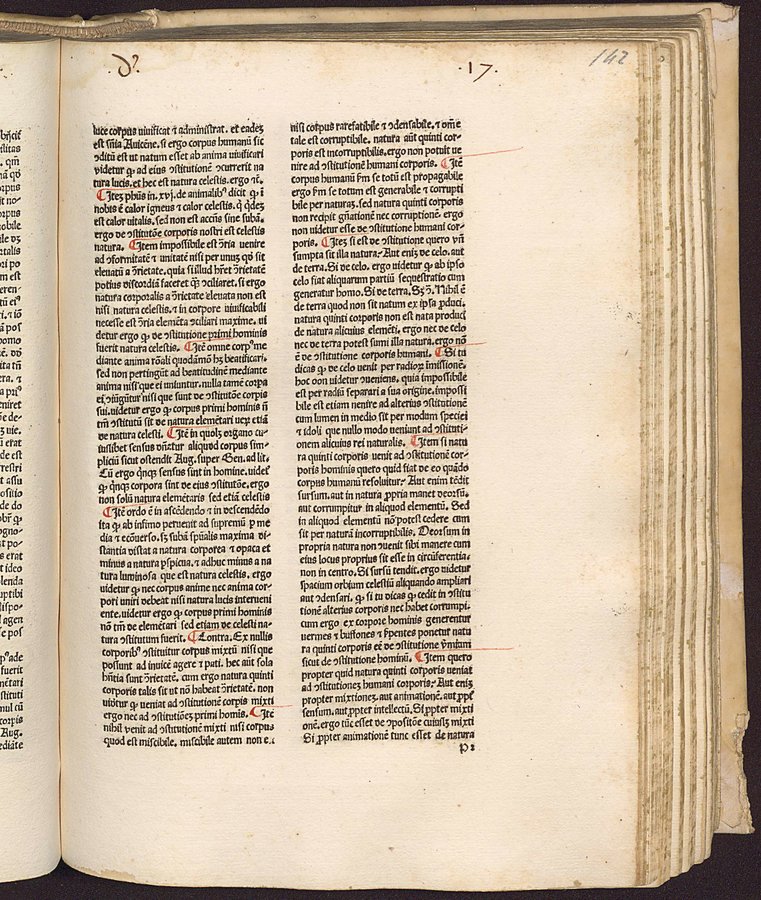 .d?
.17.
142
luce corpus viuificat ⁊ administrat. et eadeꝫ
est snia Auicēne. si ergo corpus humanū sic
ɔditū est ut natum esset ab anima viuificari
videtur ꝙ ad eius ɔstitutionē ɔcurrerit na
tura lucis. et hec est natura celestis. ergo ⁊c̄.
nobis ē calor igneus ⁊ calor celestis.
est calor vitalis. sed non est accñs sine subā.
ergo de ɔstitutōe corporis nostri est celestis
natura. ¶ Item impossibile est ɔ̄ria venire
ad ɔformitatē ⁊ unitatē nisi per unuꝫ qð sit
eleuatū a ɔ̄rietate. quia si illud hr̄et ɔ̄rietatē
potius discordiā faceret ꝙ̄ ɔciliaret. si ergo
natura corporalis a ɔ̄rietate eleuata non est
nisi natura celestis. ⁊ in corpore viuificabili
necesse est ɔ̄ria elemēta ɔciliari maxime. vi
detur ergo ꝙ de ɔstitutione primi hominis
fuerit natura celestis. ¶ Itē omne corpꝰ me
diante anima rōali quodāmō hꝫ beatificari.
sed non pertingūt ad beatitudinē mediante
anima nisi que ei uniuntur. nulla tamē corpa
ei ɔiūgūtur nisi que sunt de ɔstitutōe corpis
sui. videtur ergo ꝙ corpus primi hominis ñ
tm̄ ɔstitutū sit de natura elemētari ueꝝ etiā
de natura celesti. ¶ Itē in quolꝫ organo cu-
iuslibet sensus dñatur aliquod corpus sim-
pliciū sicut ostendit Aug. super Gen. ad lit.
Cū ergo qnqꝫ sensus sint in homine. videt̄
ꝙ qnqꝫ corpora sint de eius ɔstitutōe. ergo
non solū natura elemētaris sed etiā celestis
¶ Itē ordo ē in ascēdendo ⁊ in descendēdo
ita ꝙ ab infimo peruenit ad supremū p me
dia ⁊ ecōuerso. sꝫ subā spualis maxima di-
stantia distat a natura corporea ⁊ opaca et
minus a natura pspicua. ⁊ adhuc minus a na
tura luminosa que est natura celestis. ergo
videtur ꝙ nec corpus anime nec anima cor-
pori uniri debeat nisi natura lucis interueni
ente. videtur ergo ꝙ corpus primi hominis
nō tm̄ de elemētari sed etiam de celesti na-
tura ɔstitutum fuerit. ¶ Contra. Ex nullis
corporibꝰ ɔstituitur corpus mixtū nisi que
possunt ad inuicē agere ⁊ pati. hec aūt sola
hñtia sunt ɔ̄rietatē. cum ergo natura quinti
corporis talis sit ut nō habeat ɔ̄rietatē. non
videtur ꝙ veniat ad ɔstitutionē corpis mixti
ergo nec ad ɔstitutiōeꝫ primi homis. ¶ Itē
nihil venit ad ɔstitutionē mixti nisi corpus
quod est miscibile. miscibile autem non ē
nisi corpus rarefatibile ⁊ ɔdensabile. ⁊ om̄e
tale est corruptibile. natura aūt quinti cor-
poris est incorruptibilis. ergo non potuit ue
nire ad ɔstitutionē humani corporis. ¶ Itē
corpus humanū fm se totū est propagabile
ergo fm se totum est generabile ⁊ corrupti
bile per naturaꝫ. sed natura quinti corporis
non recipit gñationē nec corruptionē. ergo
non videtur esse de ɔstitutione humani cor-
poris. ¶ Iteꝫ si est de ɔstitutione quero vñ
sumpta sit illa natura. Aut eniꝫ de celo. aut
de terra. Si de celo. ergo videtur ꝙ ab ipso
celo fiat aliquarum partiū sequestratio cum
generatur homo. Si de terra. Sꝫ ɔ̄. Nihil ē
de terra quod non sit natum ex ipsa pduci.
natura quinti corporis non est nata produci
de natura alicuius elemēti. ergo nec de celo
nec de terra potest sumi illa natura. ergo nō
ē de ɔstitutione corporis humani. ¶ Si tu
dicas ꝙ de celo venit per radioꝝ īmissionē.
hoc non videtur ɔueniens. quia impossibile
est per radiū separari a sua origine. impossi
bile est etiam uenire ad alterius ɔstitutionē
cum lumen in medio sit per modum speciei
⁊ idoli que nullo modo ueniunt ad ɔstituti-
onem alicuius rei naturalis. ¶ Item si natu
ra quinti corporis uenit ad ɔstitutionē cor-
poris hominis quero quid fiat de eo quādo
corpus humanū resoluitur. Aut enim tēdit
sursum. aut in natura ppria manet deorsū.
aut corrumpitur in aliquod elementū. Sed
in aliquod elementū nō potest cedere cum
sit per naturā incorruptibilis. Deorsum in
propria natura non ɔuenit sibi manere cum
eius locus proprius sit esse in circūferentia.
non in centro. Si sursū tendit. ergo uidetur
spacium orbium celestiū aliquando ampliari
aut ɔdensari. ꝙ si tu dicas ꝙ cedit in ɔstitu
tionē alterius corporis nec habet corrumpi.
cum ergo ex corpore hominis generentur
uermes ⁊ buffones ⁊ spentes ponetur natu
ra quinti corporis eē de ɔstitutione
sicut de ɔstitutione hominū. ¶ Item quero
propter quid natura quinti corporis ueniat
ad ɔstitutioneꝫ humani corporis. Aut eniꝫ
propter mixtioneꝫ. aut animationē. aut ppt̄
sensum. aut ppter intellectū. Si ppter mixti
onē. ergo tūc esset de ɔpositōe cuiuslꝫ mixti
Si ppter animationē tunc esset de natura
p2